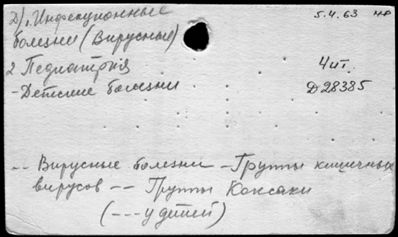 Д/1. Инфекционные 5.4.63 нр
болезни (Вирусные)
2 Педиатрия 4 шт.
- Детские болезни D28385
-- Вирусные болезни - Группы кишечных
вирусов -- Группы Коксаки
(--- у детей)